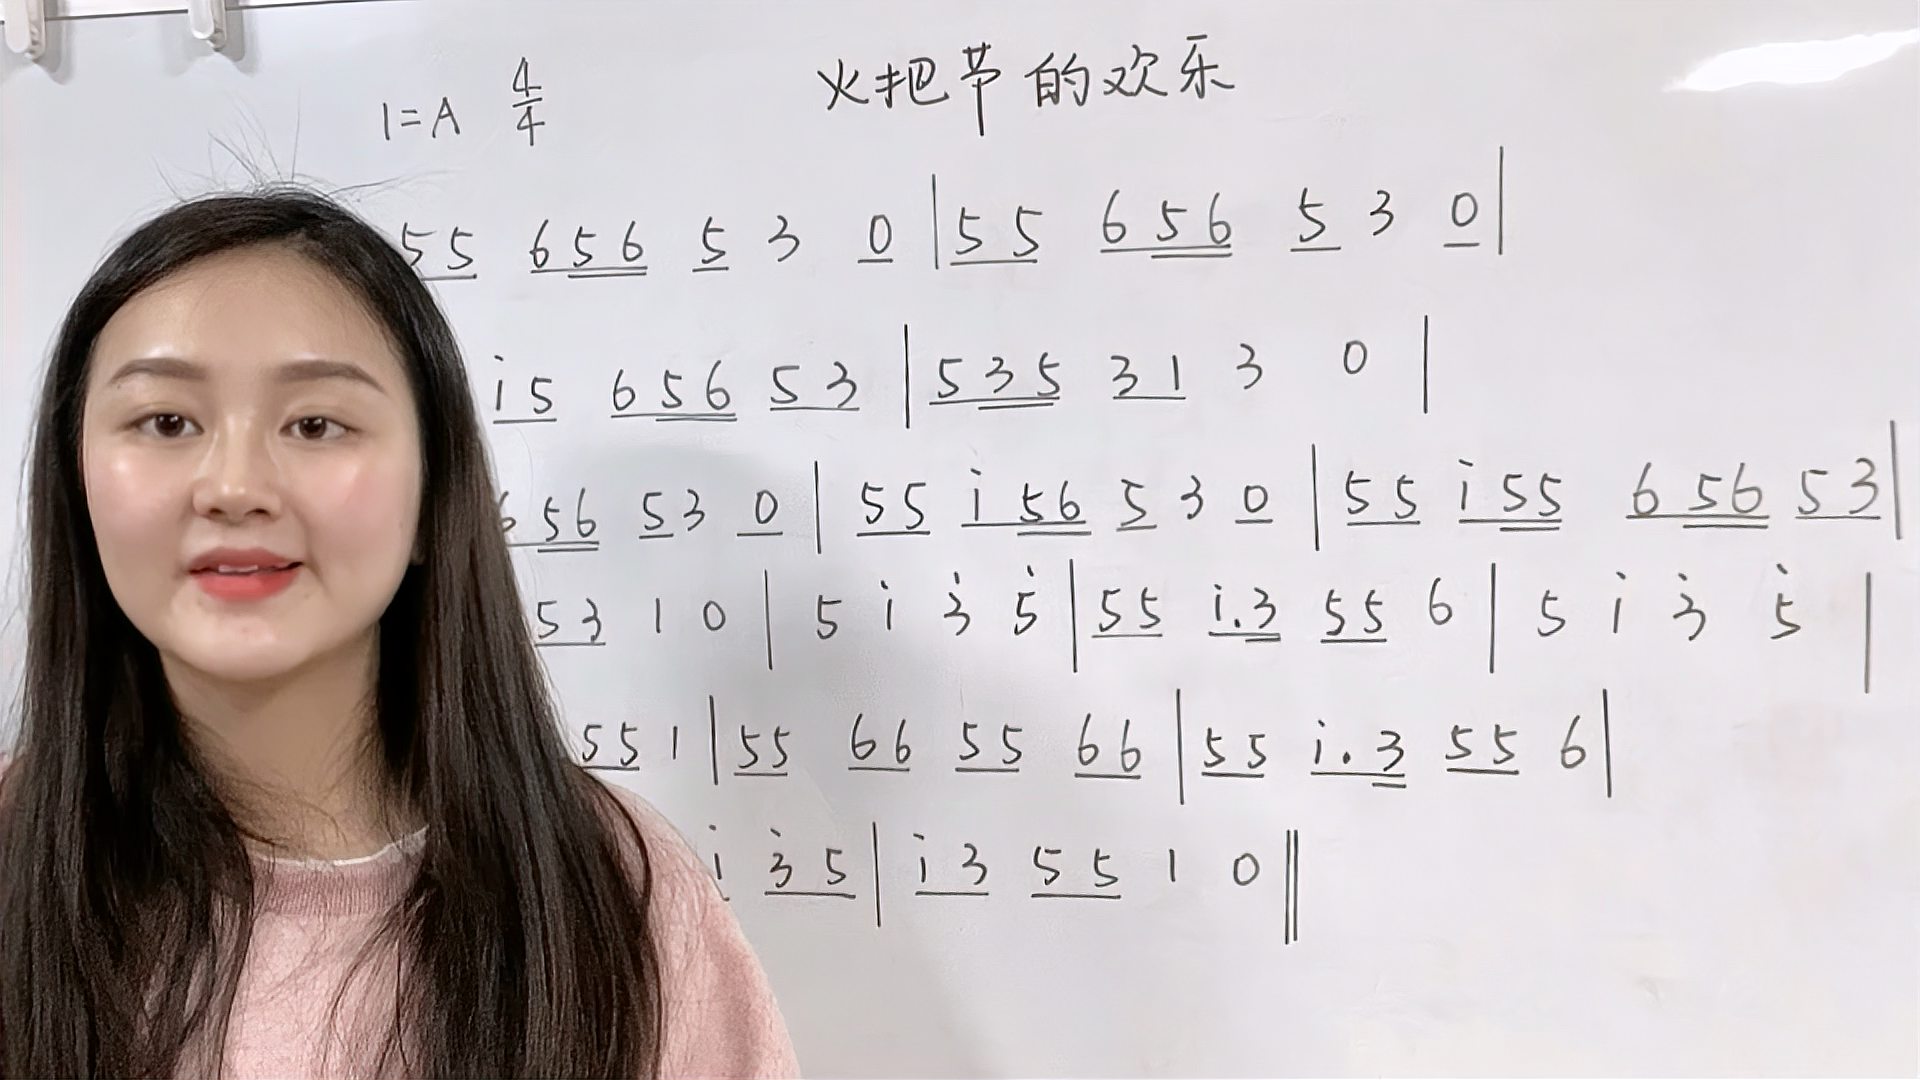 火把节的欢乐
1=A 4/4
55 656 5 3 0 | 55 656 5 3 0 |
i̇5 656 53 | 535 31 3 0 |
56 53 0 | 55 i̇56 5 3 0 | 55 i̇55 656 53 |
53 1 0 | 5 i̇ 3̇ 5̇ | 55 i̇.3 55 6 | 5 i̇ 3̇ 5̇ |
55 1 | 55 66 55 66 | 55 i̇.3 55 6 |
i̇ 3̇5 | i̇3 55 1 0 ‖